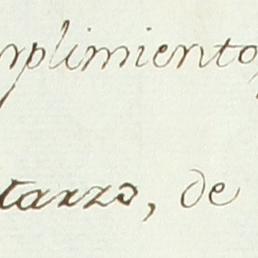 mplimiento,
tarzo, de